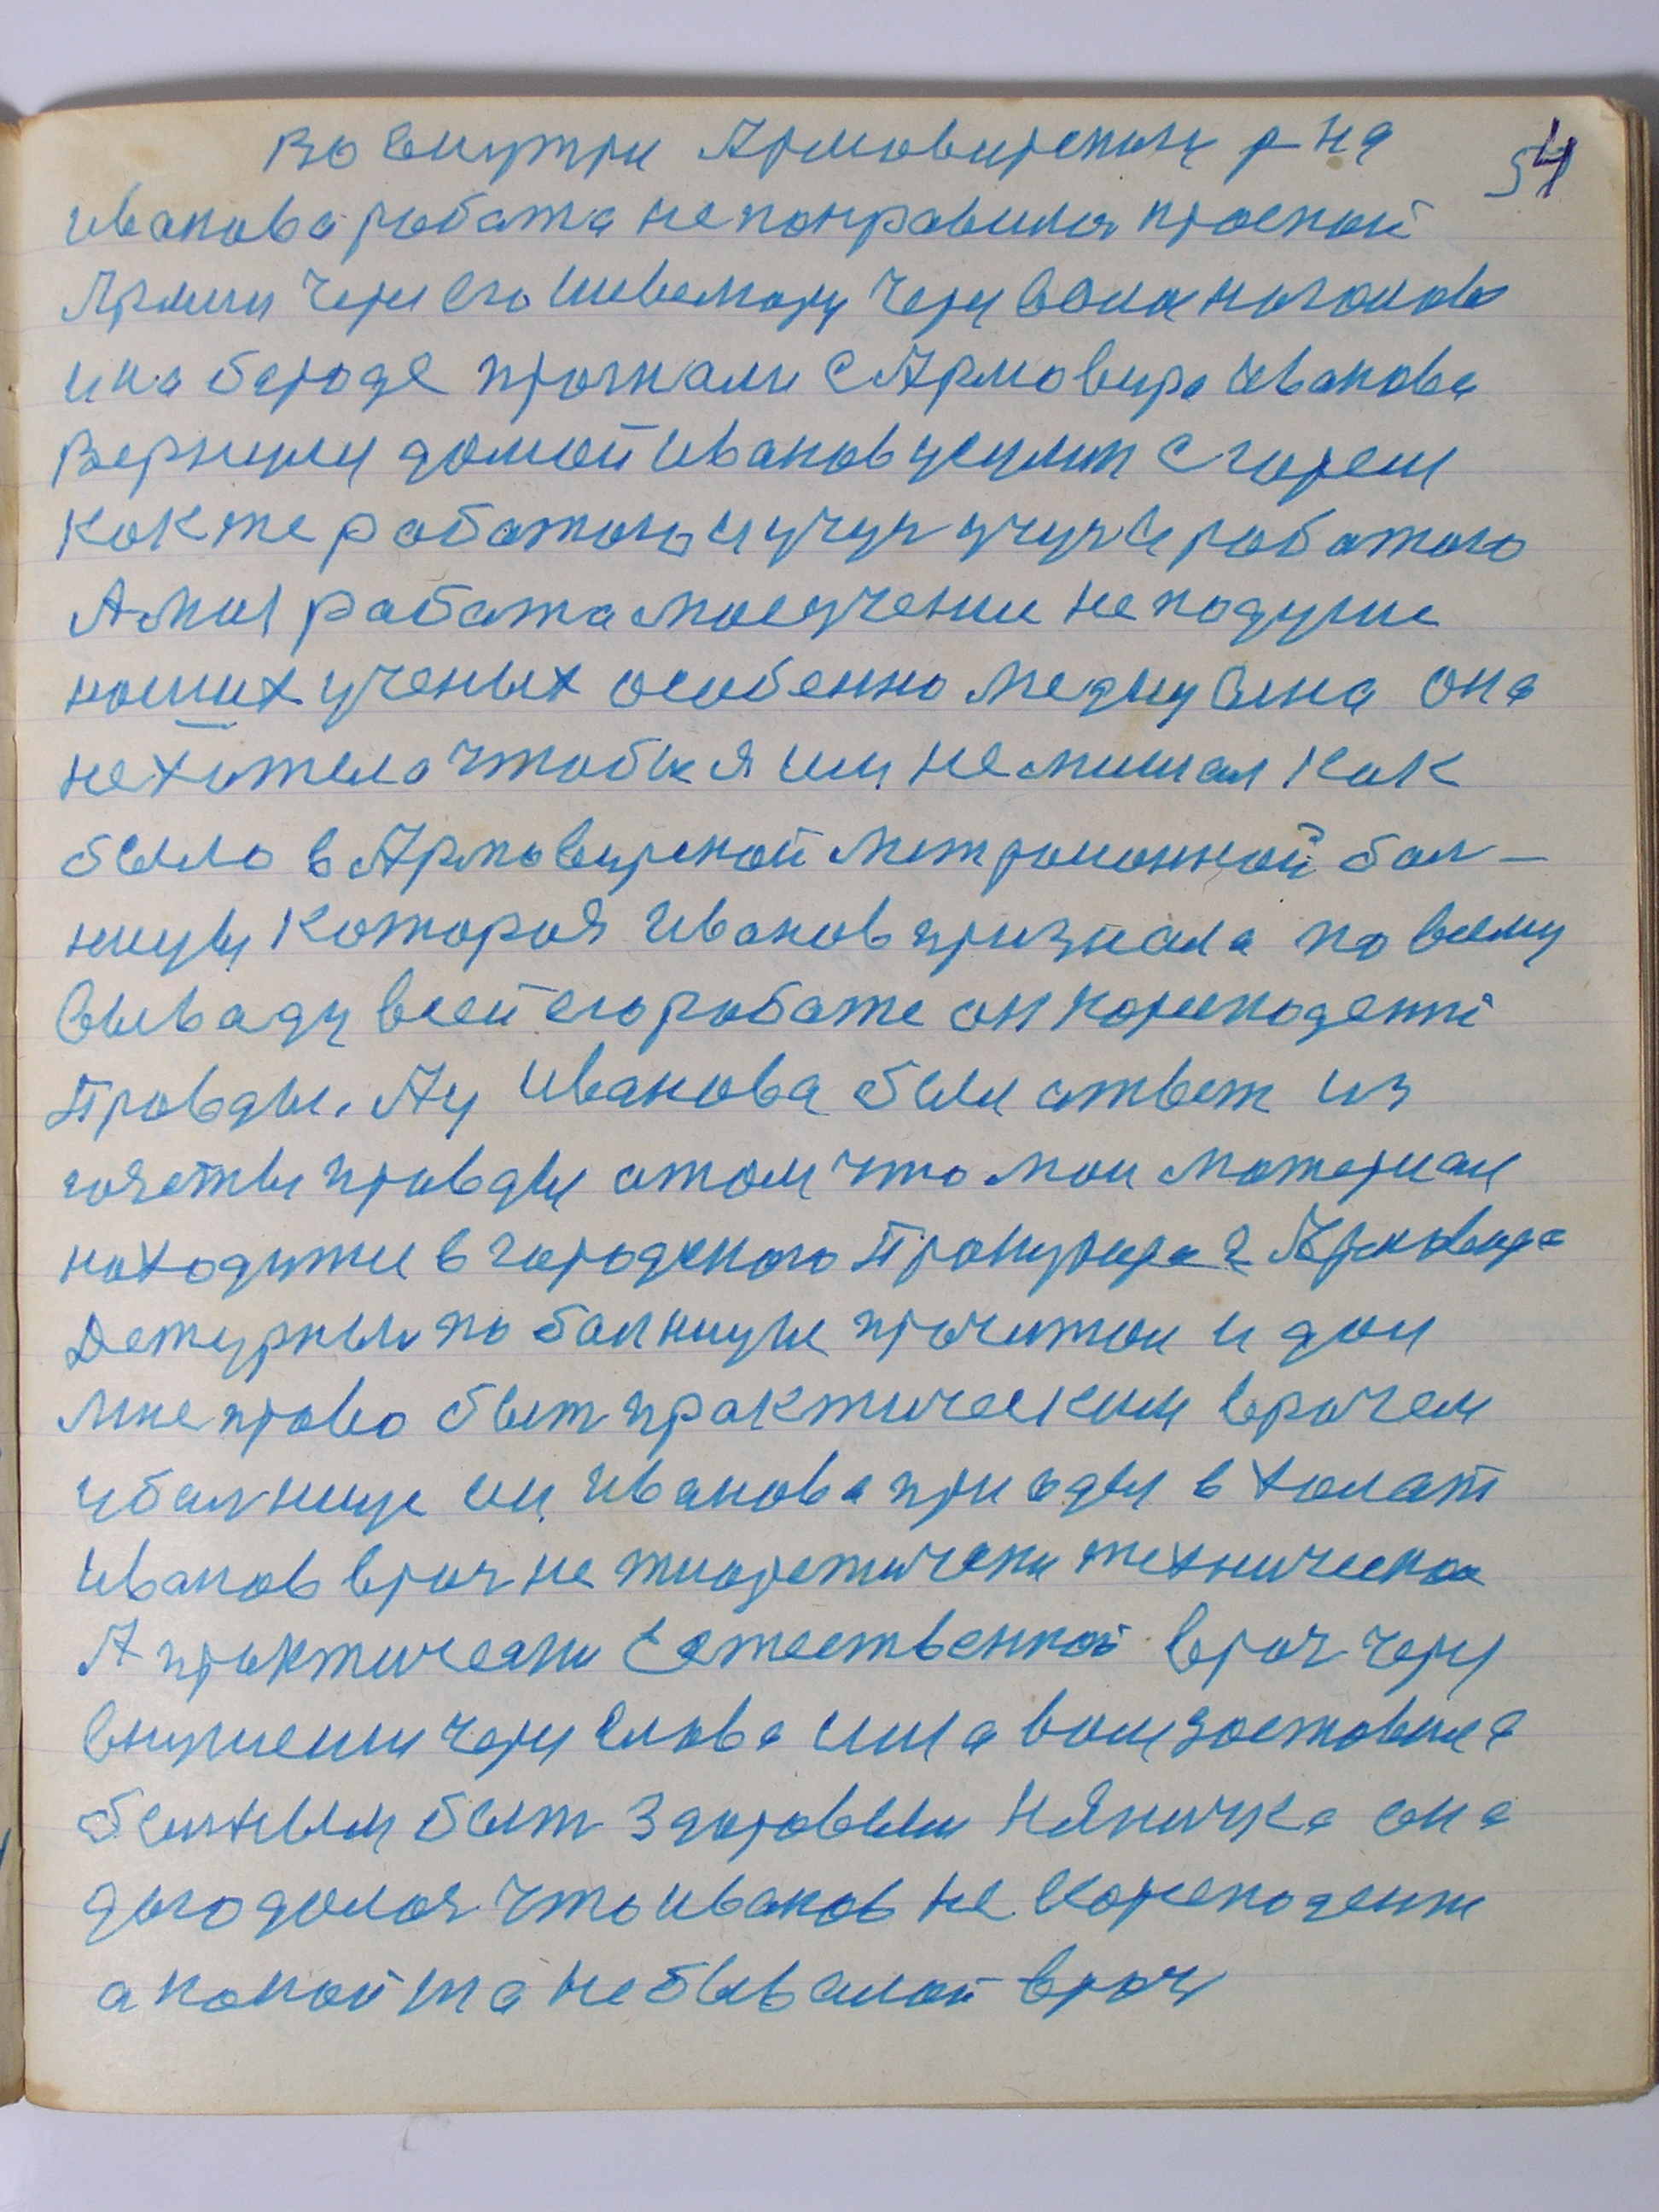 Во внутри Армовирскои р-на
54
Иванова работа непонравилася красной
Армии через его шевелюру через волос на голове
и на бороде прогнали с Армовира Иванова
Вернули домой Иванов усилит с горем
Как же работою и учус учус и работою
А моя работа мое учение не подуши
наших ученых особенно медицина она
не хотела чтобы я им не мишал как
было в Армовирской межраионной бол-
ници которая Иванов признала по всему
вываду всей его работе он кореподент
Правды. А у Иванова был ответ из
газеты правды отом что мои материал
находитже в городского Прокурора г. Армовира
Дежурный по болницы прочитал и дал
мне право быт практическим врачем
у болнице им Иванова приоды в халат
Иванов врач не тиоретически техническои
А практически Естественной врач через
внушении через слова има вам заставила
больным быт здоровым Няничка она
догодолоя что Иванов не кореподент
а какой та небывалой врач